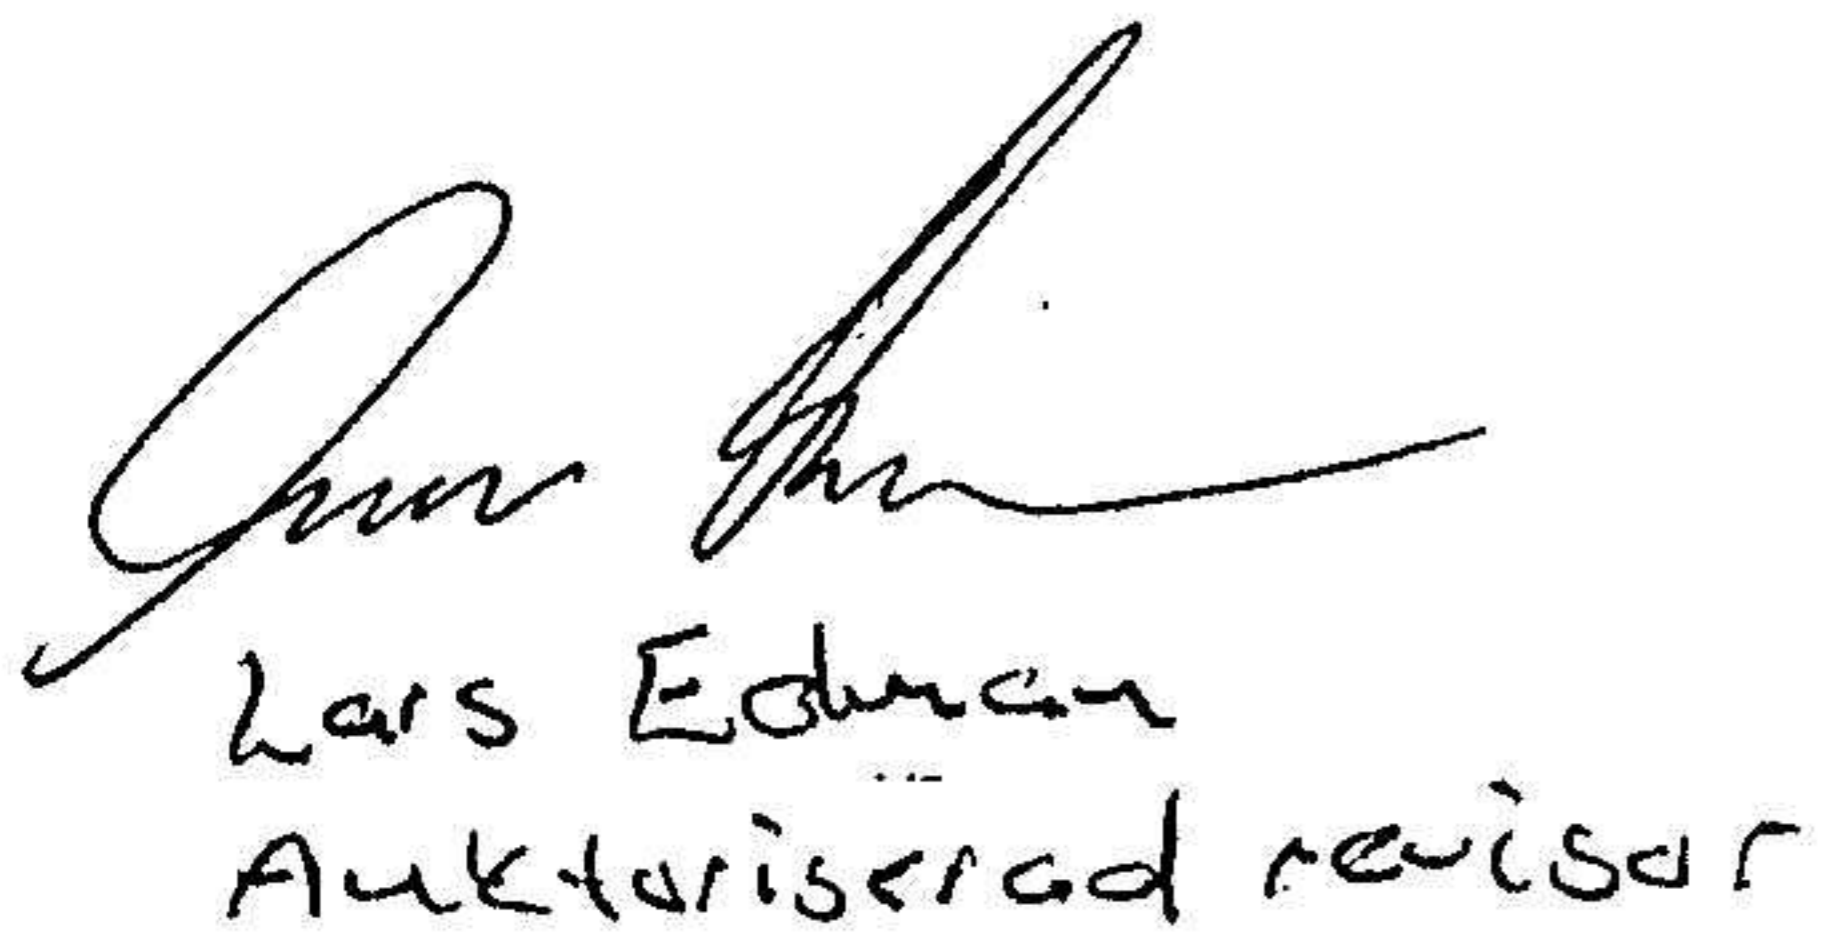 Lars Edman
Auktoriserad revisor